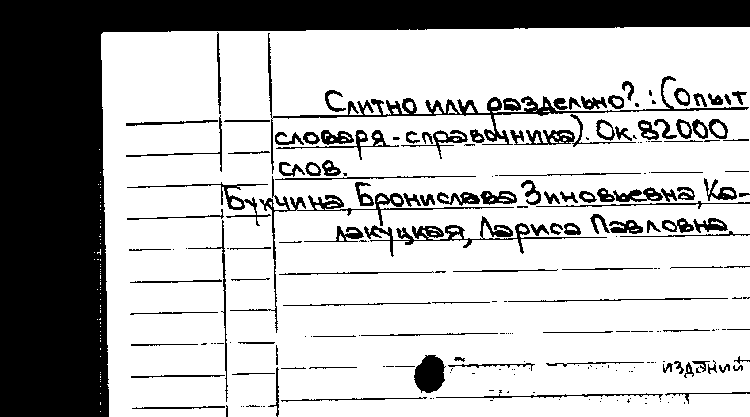 Слитно или раздельно? : (Опыт
словаря-справочника). Ок. 82000
слов.
Букчина, Бронислава Зиновьевна, Ка-
лакуцкая, Лариса Павловна.
изданий